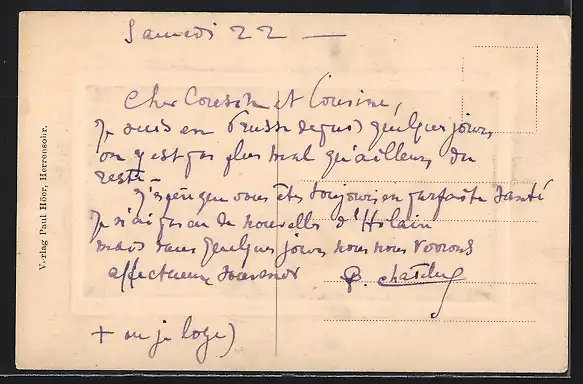 Samedi 22 —
Cher Cousin et Cousine,
Je suis en Prusse depuis quelques jours
on y est pas plus mal qu'ailleurs du
reste —
J'espère que vous êtes toujours en parfaite santé
Je n'ai pas eu de nouvelles d'Hilain
mais dans quelques jours nous nous verrons
affectueux souvenir
+ ou je loge)
Verlag Paul Höer, Herrensohr.